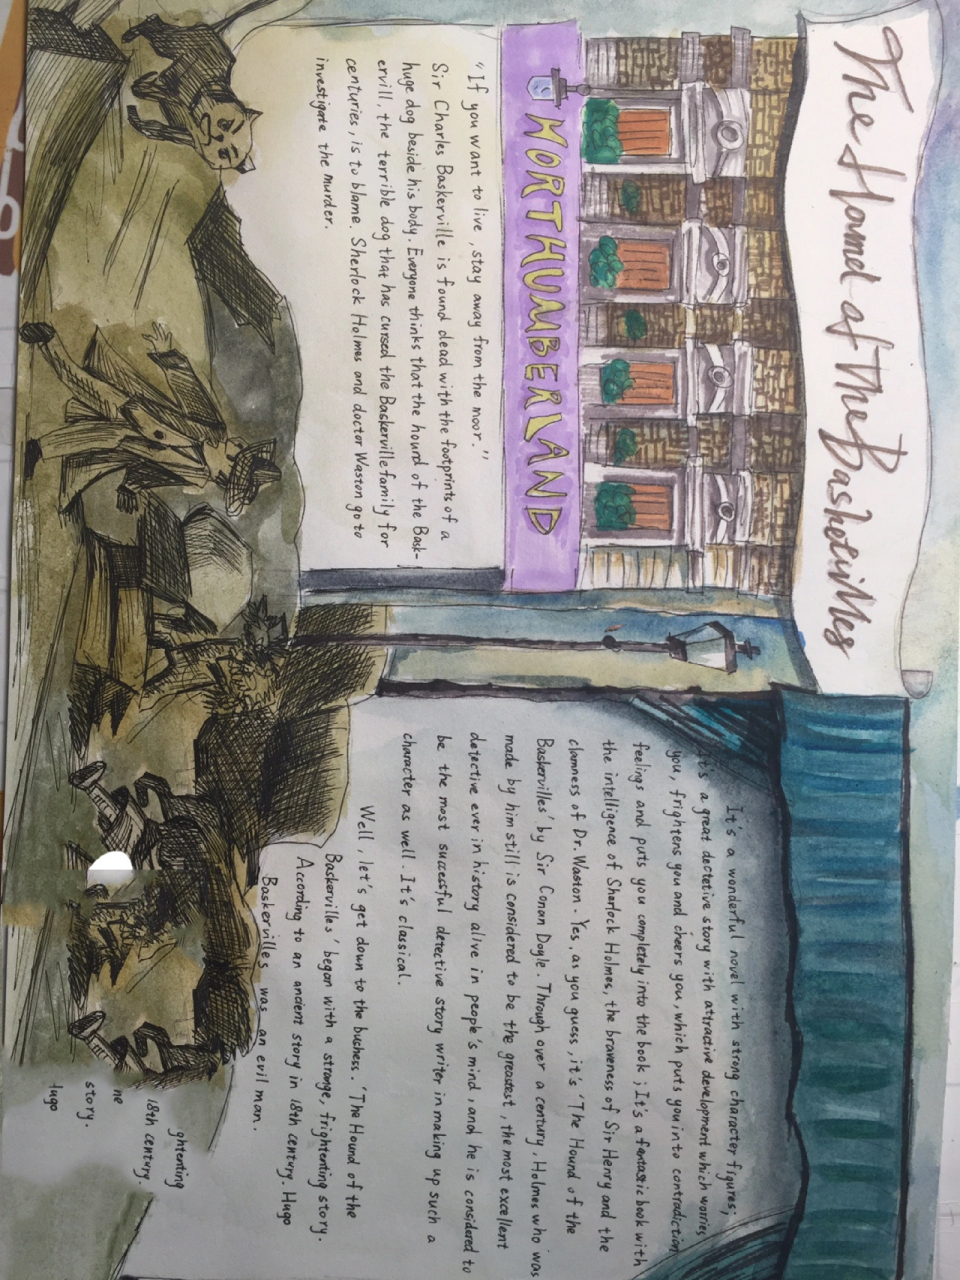 The Hound of The Baskervilles
MORTHUMBERLAND
"If you want to live, stay away from the moor."
Sir Charles Baskerville is found dead with the footprints of a
huge dog beside his body. Everyone thinks that the hound of the Bask-
ervill, the terrible dog that has cursed the Baskerville family for
centuries, is to blame. Sherlock Holmes and doctor Waston go to
investigate the murder.
It's a wonderful novel with strong character figures;
it's a great dectetive story with attractive development which worries
you, frightens you and cheers you, which puts you into contradiction
feelings and puts you completely into the book; It's a fantastic book with
the intelligence of Sherlock Holmes, the braveness of Sir Henry and the
clamness of Dr. Waston - Yes, as you guess, it's 'The Hound of the
Baskervilles' by Sir Conan Doyle. Through over a century, Holmes who was
made by him still is considered to be the greastest, the most excellent
detective ever in history alive in people's mind, and he is considered to
be the most successful detective story writer in making up such a
character as well. It's classical.
Well, let's get down to the buchess. 'The Hound of the
Baskervilles' began with a strange, frightenting story.
According to an ancient story in 18th century. Hugo
Baskervilles was an evil man.
ghtenting
18th century.
ne
story.
Hugo